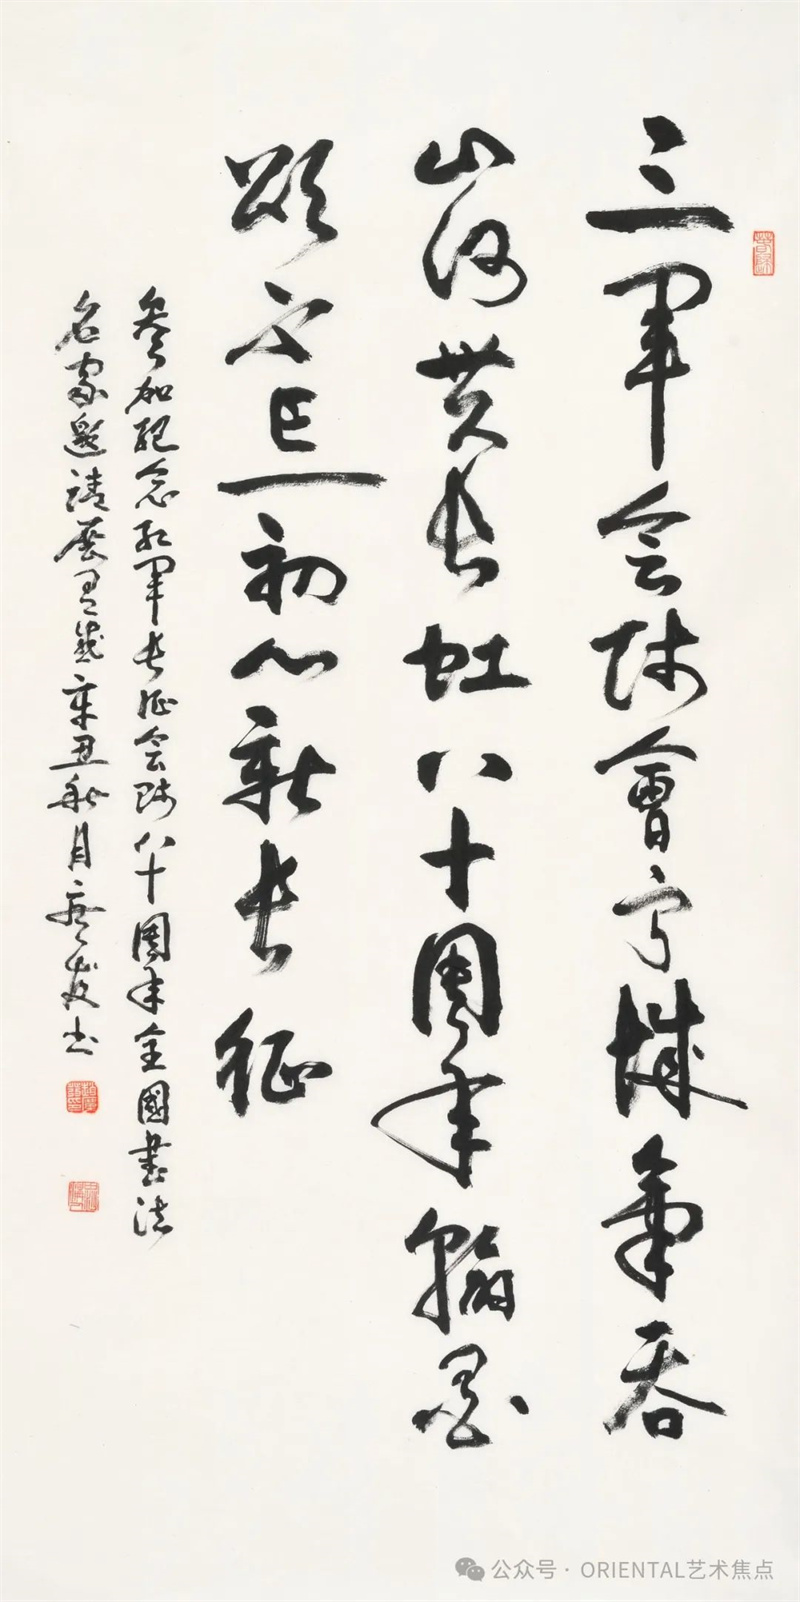 三军会师會宁城氣吞
山河贯长虹八十周年翰墨
颂不忘初心新长征
参加纪念红军长征会师八十周年全國書法
名家邀请展有感辛丑秋月书
公众号·ORIENTAL艺术焦点